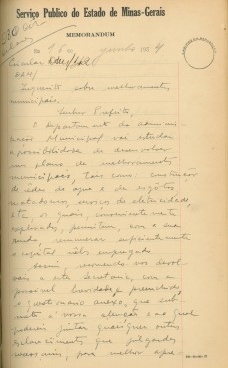 Serviço Publico do Estado de Minas-Gerais
MEMORANDUM
16 junho 193
Circular
Inquerito sobre melhoramentos
municipais.
Senhor Prefeito,
O Departamento da Administração
Municipal vai estudar
a possibilidade de desenvolver
um plano de melhoramentos
municipais, tais como: construção
de rêdes de agua e de esgôtos
matadouros, serviços de eletricidade,
etc, os quais, convenientemente
explorados, permitem, com o
remunerar suficientemente
o capital nêles empregado
Assim, recomendo-vos
a esta Secretaria, com a
possivel brevidade, preenchido,
o questionario anexo, que
á vossa atenção e ao qual
podereis juntar quaisquer outros
esclarecimentos que julgardes
necessarios, para melhor